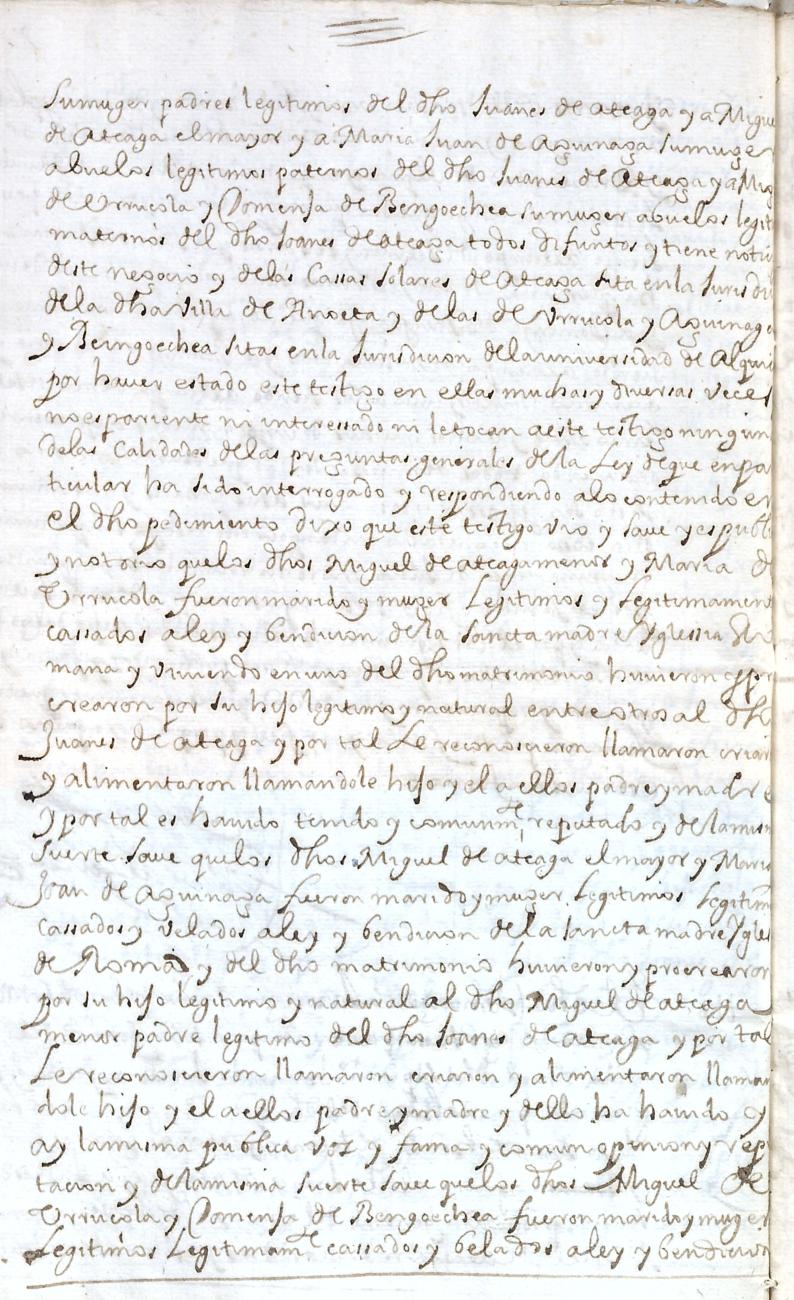 Sumuger padres legitimos del dho Juanes de ateaga y a Migue
de Ateaga el mayor y a Maria Juan de Aguinaga sumuger
abuelos legitimos paternos del dho Juanes de Ateaga y a Mig
de Urrucola y Domensa de Bengoechea sumuger abuelos legit
maternos del dho Joanes de ateaga todos difuntos y tiene noti
deste negocio y delas Cassas Solares de Ateaga sita en la Jurisdi
dela dha villa de Anoeta y delas de Urrucola y Aguinaga
y Beingoechea sitas en la Jurisdicion dela universidad de Alqui
por haver estado este testigo en ellas muchas y diversas veces
no es pariente ni interessado ni le tocan a este testigo ningun
delas Calidades delas preguntas generales dela Ley de que en par
ticular ha sido interrogado y respondiendo alo contenido en
el dho pedimiento dixo que este testigo vio y save y es publi
y notorio quelos dhos Miguel de ateaga menor y Maria de
Urrucola fueron marido y muger Legitimos y Legitimament
cassados a ley y bendicion dela sancta madre Yglessia Ro
mana y viviendo en uno del dho matrimonio huvieron y pr
crearon por su hijo legitimo y natural entre otros al dho
Juanes de ateaga y por tal Le reconoscieron llamaron criar
y alimentaron llamandole hijo y el a ellos padre y madre
y por tal es havido tenido y comunmte reputado y de la mism
suerte save quelos dhos Miguel de ateaga el mayor y Maria
Joan de Aguinaga fueron marido y muger Legitimos Legitim
cassados y velados a ley y bendicion dela sancta madre Ygles
de Roma y del dho matrimonio huvieron y procrearon
por su hijo legitimo y natural al dho Miguel de ateaga
menor padre legitimo del dho Joanes de ateaga y por tal
Le reconoscieron llamaron criaron y alimentaron llaman
dole hijo y el a ellos padre y madre y dello ha havido y
ay la misma publica voz y fama y comun opinion y repu
tacion y de la misma suerte save quelos dhos Miguel de
Urrucola y Domensa de Bengoechea fueron marido y muger
Legitimos Legitimamte cassados y belados a ley y bendicion